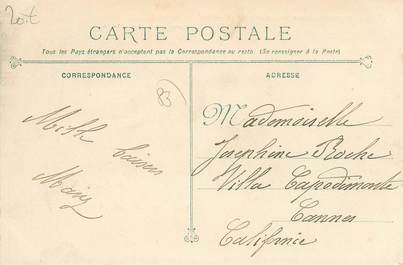 20it
CARTE POSTALE
Tous les Pays étrangers n'acceptent pas la Correspondance au recto. (Se renseigner à la Poste)
CORRESPONDANCE
ADRESSE
83
Mille baisers
Mademoiselle
Josephine Roche
Villa Capodimonte
Cannes
Californie